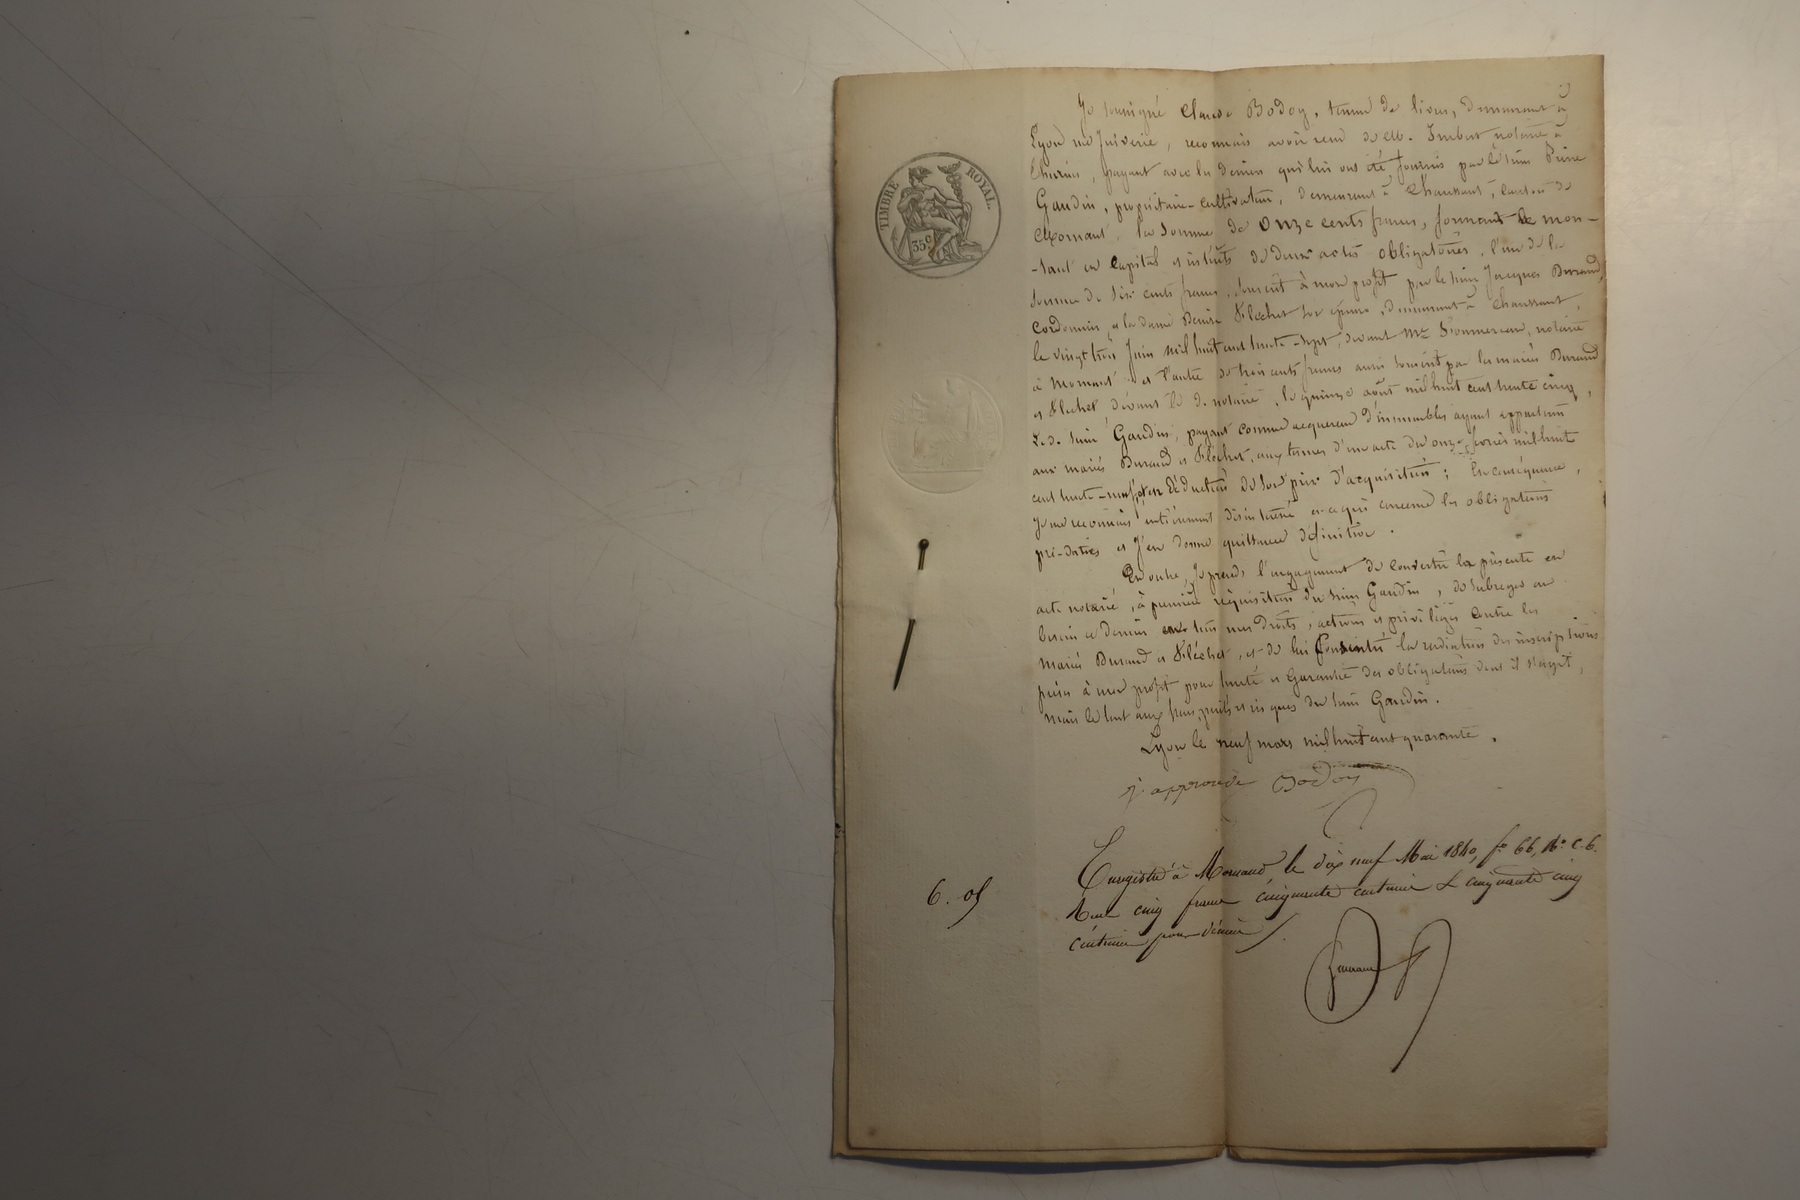 TIMBRE ROYAL.
35 c
Je soussigné Claude Bodoy, teneur de livres, demeurant à
Lyon rue Juiverie, reconnais avoir reçu de M. Imbert notaire à
payant avec les deniers qui lui ont été fournis par le sieur Pierre
Gaudin, propriétaire-cultivateur, demeurant à Chaussant, canton de
Mornant la somme de onze cents francs, formant le mon-
-tant en capital et intérêts de deux actes obligatoires, l'un de la
somme de six cents francs, souscrit à mon profit par le sieur Jacques Durand,
cordonnier, et la dame Benoite Fléchet son épouse, demeurant à Chaussant,
le vingt trois Juin mil huit cent trente-sept, devant Me notaire
à Mornant et l'autre de trois cents francs aussi souscrit par les mariés Durand
et Fléchet devant le d. notaire, le quinze août mil huit cent trente cinq,
Le d. sieur Gaudin, payant comme acquéreur d'immeubles ayant appartenu
aux mariés Durand et Fléchet, aux termes d'un acte du onze février mil huit
cent trente-neuf, et en déduction de son prix d'acquisition; En conséquence,
Je me reconnais entièrement désintéressé en ce qui concerne les obligations
pré-datées et J'en donne quittance définitive.
En outre, Je prends l'engagement de convertir la présente en
acte notarié, à première réquisition du sieur Gaudin, de subroger au
besoin ce dernier tous mes droits, actions et privilèges contre les
mariés Durand et Fléchet, et de lui consentir la radiation des inscriptions
prises à mon profit pour sureté et Garantie des obligations dont il s'agit,
mais le tout aux frais, périls et risques du sieur Gaudin.
Lyon le neuf mars mil huit cent quarante.
J'approuve Bodoy
6. 05
Enregistré à Mornant, le dix neuf Mai 1840, fo 66, Ro C. 6.
Reçu cinq francs cinquante centimes et cinquante cinq
centimes pour décime